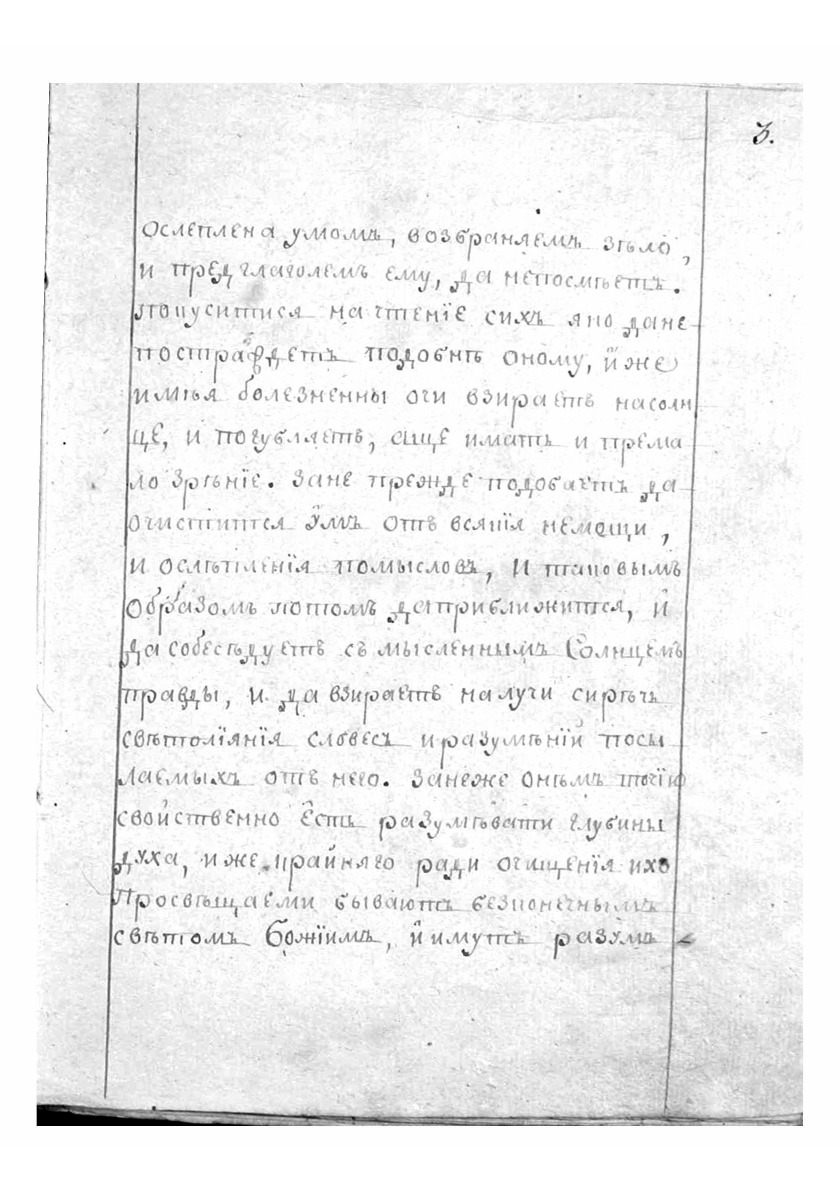 3.
ослеплена умомъ, возбраняемъ зѣло,
и предглаголемъ ему, да непосмѣетъ.
покуситися на чтенїе сихъ яко дане
постраждетъ подобнѣ оному, й же
имѣя болезненны очи взираетъ насолн
це, и погубляетъ, аще имать и према
ло зрѣнїе. Зане прежде подобаетъ да
очистится умъ отъ всякїя немощи,
и ослѣпленїя помысловъ, и таковымъ
образомъ потомъ даприближится, й
да собесѣдуетъ съ мысленнымъ Солнцемъ
правды, и да взираетъ на лучи сирѣчь
свѣтолїянїя словесъ и разумѣнїй посы
лаемыхъ отъ него. Занеже онѣмъ точїю
свойственно есть разумѣвати глубины
духа, иже крайняго ради очищенїя ихъ
Просвѣщаеми бываютъ безконечнымъ
свѣтомъ Божїимъ, й имутъ разумъ